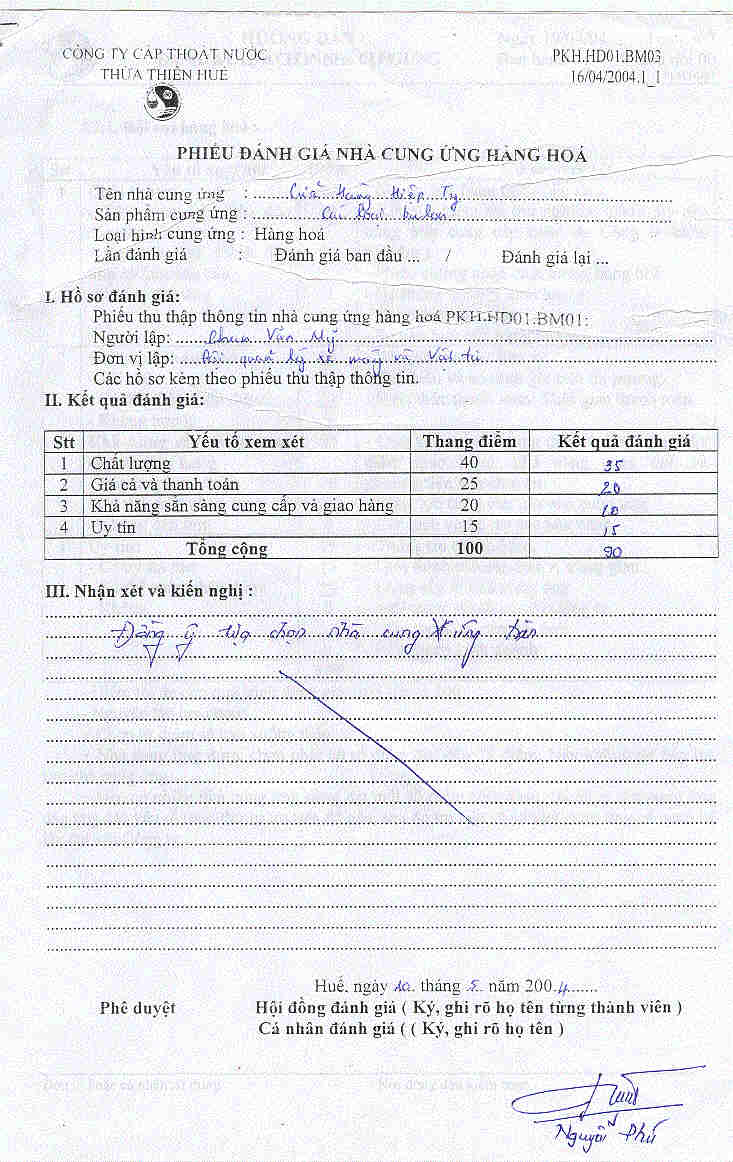 CÔNG TY CẤP THOÁT NƯỚC
THỪA THIÊN HUẾ
PKH.HD01.BM03
16/04/2004.1_1
PHIẾU ĐÁNH GIÁ NHÀ CUNG ỨNG HÀNG HOÁ
Tên nhà cung ứng : Cửa Hàng Hiệp Ty
Sản phẩm cung ứng : Các loại
Loại hình cung ứng : Hàng hoá
Lần đánh giá : Đánh giá ban đầu ... / Đánh giá lại ...
I. Hồ sơ đánh giá:
Phiếu thu thập thông tin nhà cung ứng hàng hoá PKH.HD01.BM01:
Người lập: Phan Văn Mỹ
Đơn vị lập: Đội quản lý xe máy và Vật tư
Các hồ sơ kèm theo phiếu thu thập thông tin.
II. Kết quả đánh giá:
Stt Yếu tố xem xét Thang điểm Kết quả đánh giá
1 Chất lượng 40 35
2 Giá cả và thanh toán 25 20
3 Khả năng sẵn sàng cung cấp và giao hàng 20
4 Uy tín 15 15
Tổng cộng 100 90
III. Nhận xét và kiến nghị :
Đồng ý lựa chọn nhà cung ứng trên
Huế, ngày 10 tháng 5 năm 2004
Phê duyệt Hội đồng đánh giá ( Ký, ghi rõ họ tên từng thành viên )
Cá nhân đánh giá ( ( Ký, ghi rõ họ tên )
Nguyễn Phú